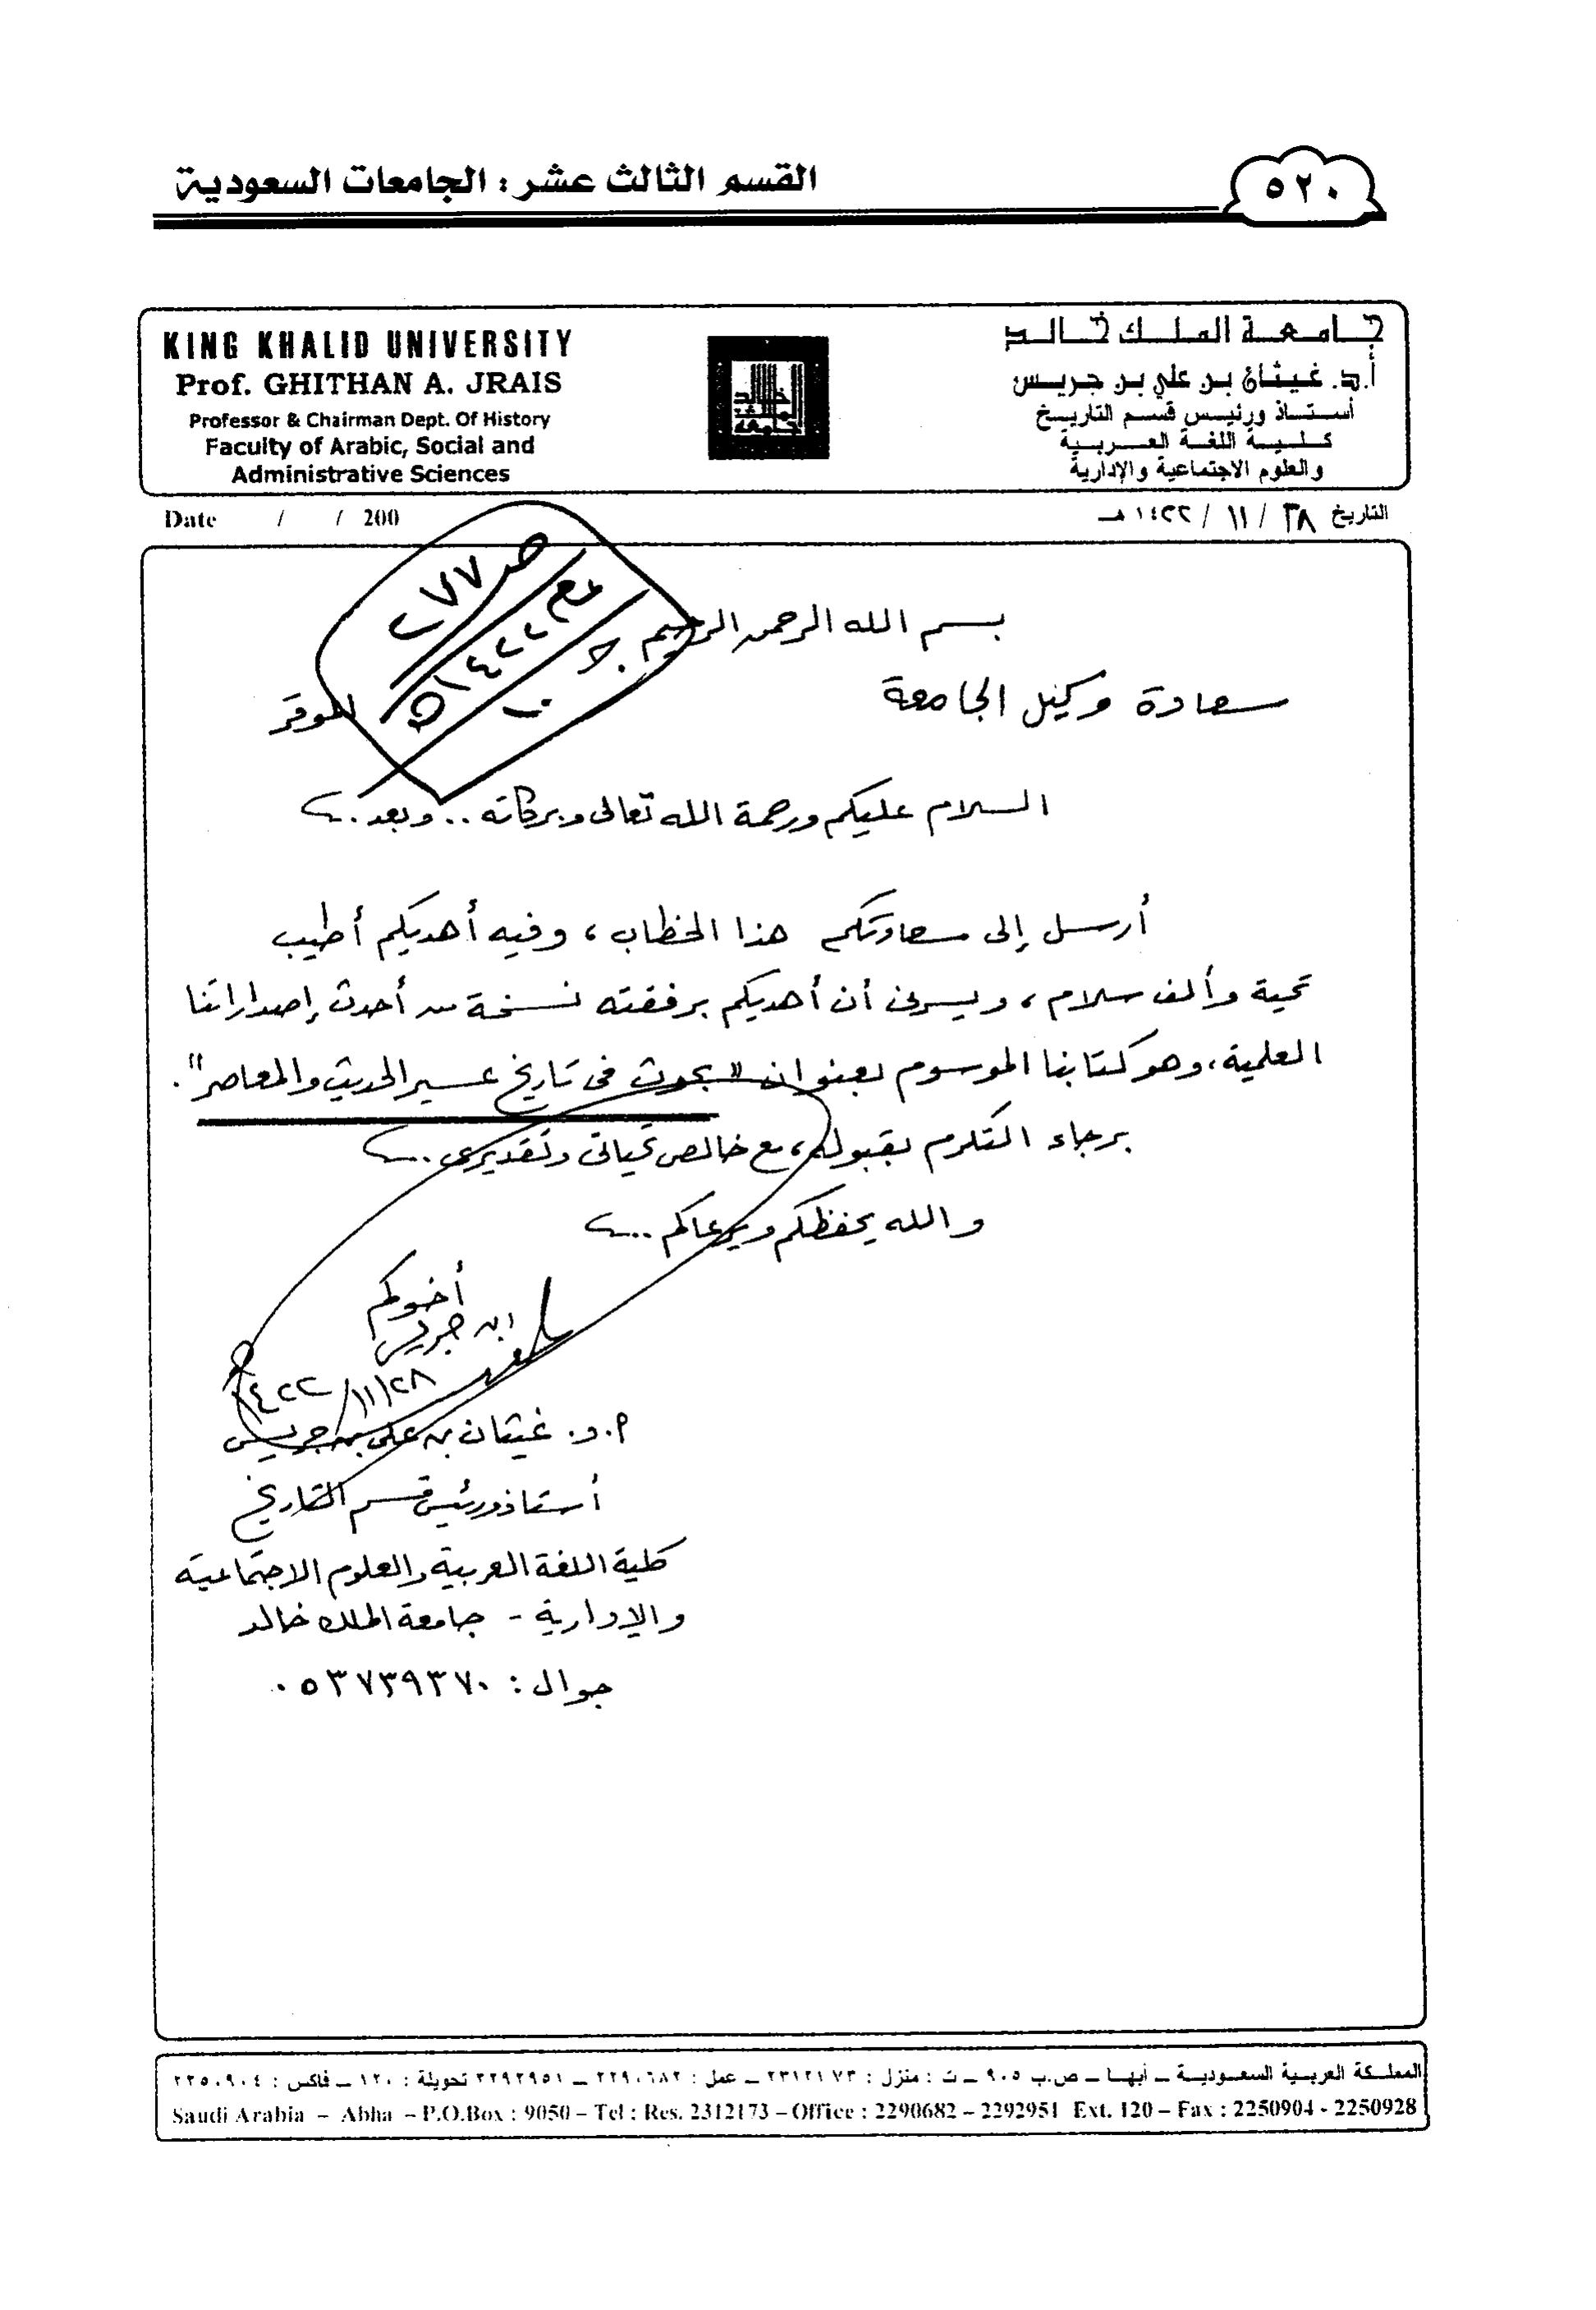 القسم الثالث عشر : الجامعات السعودية
٥٢٠
KING KHALID UNIVERSITY
Prof. GHITHAN A. JRAIS
Professor & Chairman Dept. Of History
Faculty of Arabic, Social and
Administrative Sciences
جامعة الملك خالد
أ.د. غيثان بن علي بن جريس
أستاذ ورئيس قسم التاريخ
كلية اللغة العربية
والعلوم الاجتماعية والإدارية
Date / / 200
التاريخ ٢٨ / ١١ / ١٤٢٢ هـ
بسم الله الرحمن الرحيم
سعادة وكيل الجامعة الموقر
السلام عليكم ورحمة الله تعالى وبركاته .. وبعد ..
أرسل إلى سعادتكم هذا الخطاب ، وفيه أهديكم أطيب
تحية وألف سلام ، ويسرني أن أهديكم برفقته نسخة من أحدث إصداراتنا
العلمية ، وهو كتابنا الموسوم بعنوان " بحوث في تاريخ عسير الحديث والمعاصر " .
برجاء التكرم بقبوله ، مع خالص تحياتي وتقديري ..
والله يحفظكم ويرعاكم ...
أخوكم
ابن جريس
٢٨/١١/١٤٢٢
أ.د. غيثان بن علي بن جريس
أستاذ ورئيس قسم التاريخ
كلية اللغة العربية والعلوم الاجتماعية
والإدارية - جامعة الملك خالد
جوال : ٠٥٣٧٣٩٣٧٠
المملكة العربية السعودية ــ أبها ــ ص.ب ٩٠٥ ــ ت : منزل : ٢٣١٢١٧٣ ــ عمل : ٢٢٩٠٦٨٢ ــ ٢٢٩٢٩٥١ تحويلة : ١٢٠ ــ فاكس : ٢٢٥٠٩٠٤
Saudi Arabia – Abha – P.O.Box : 9050 – Tel : Res. 2312173 – Office : 2290682 – 2292951 Ext. 120 – Fax : 2250904 - 2250928